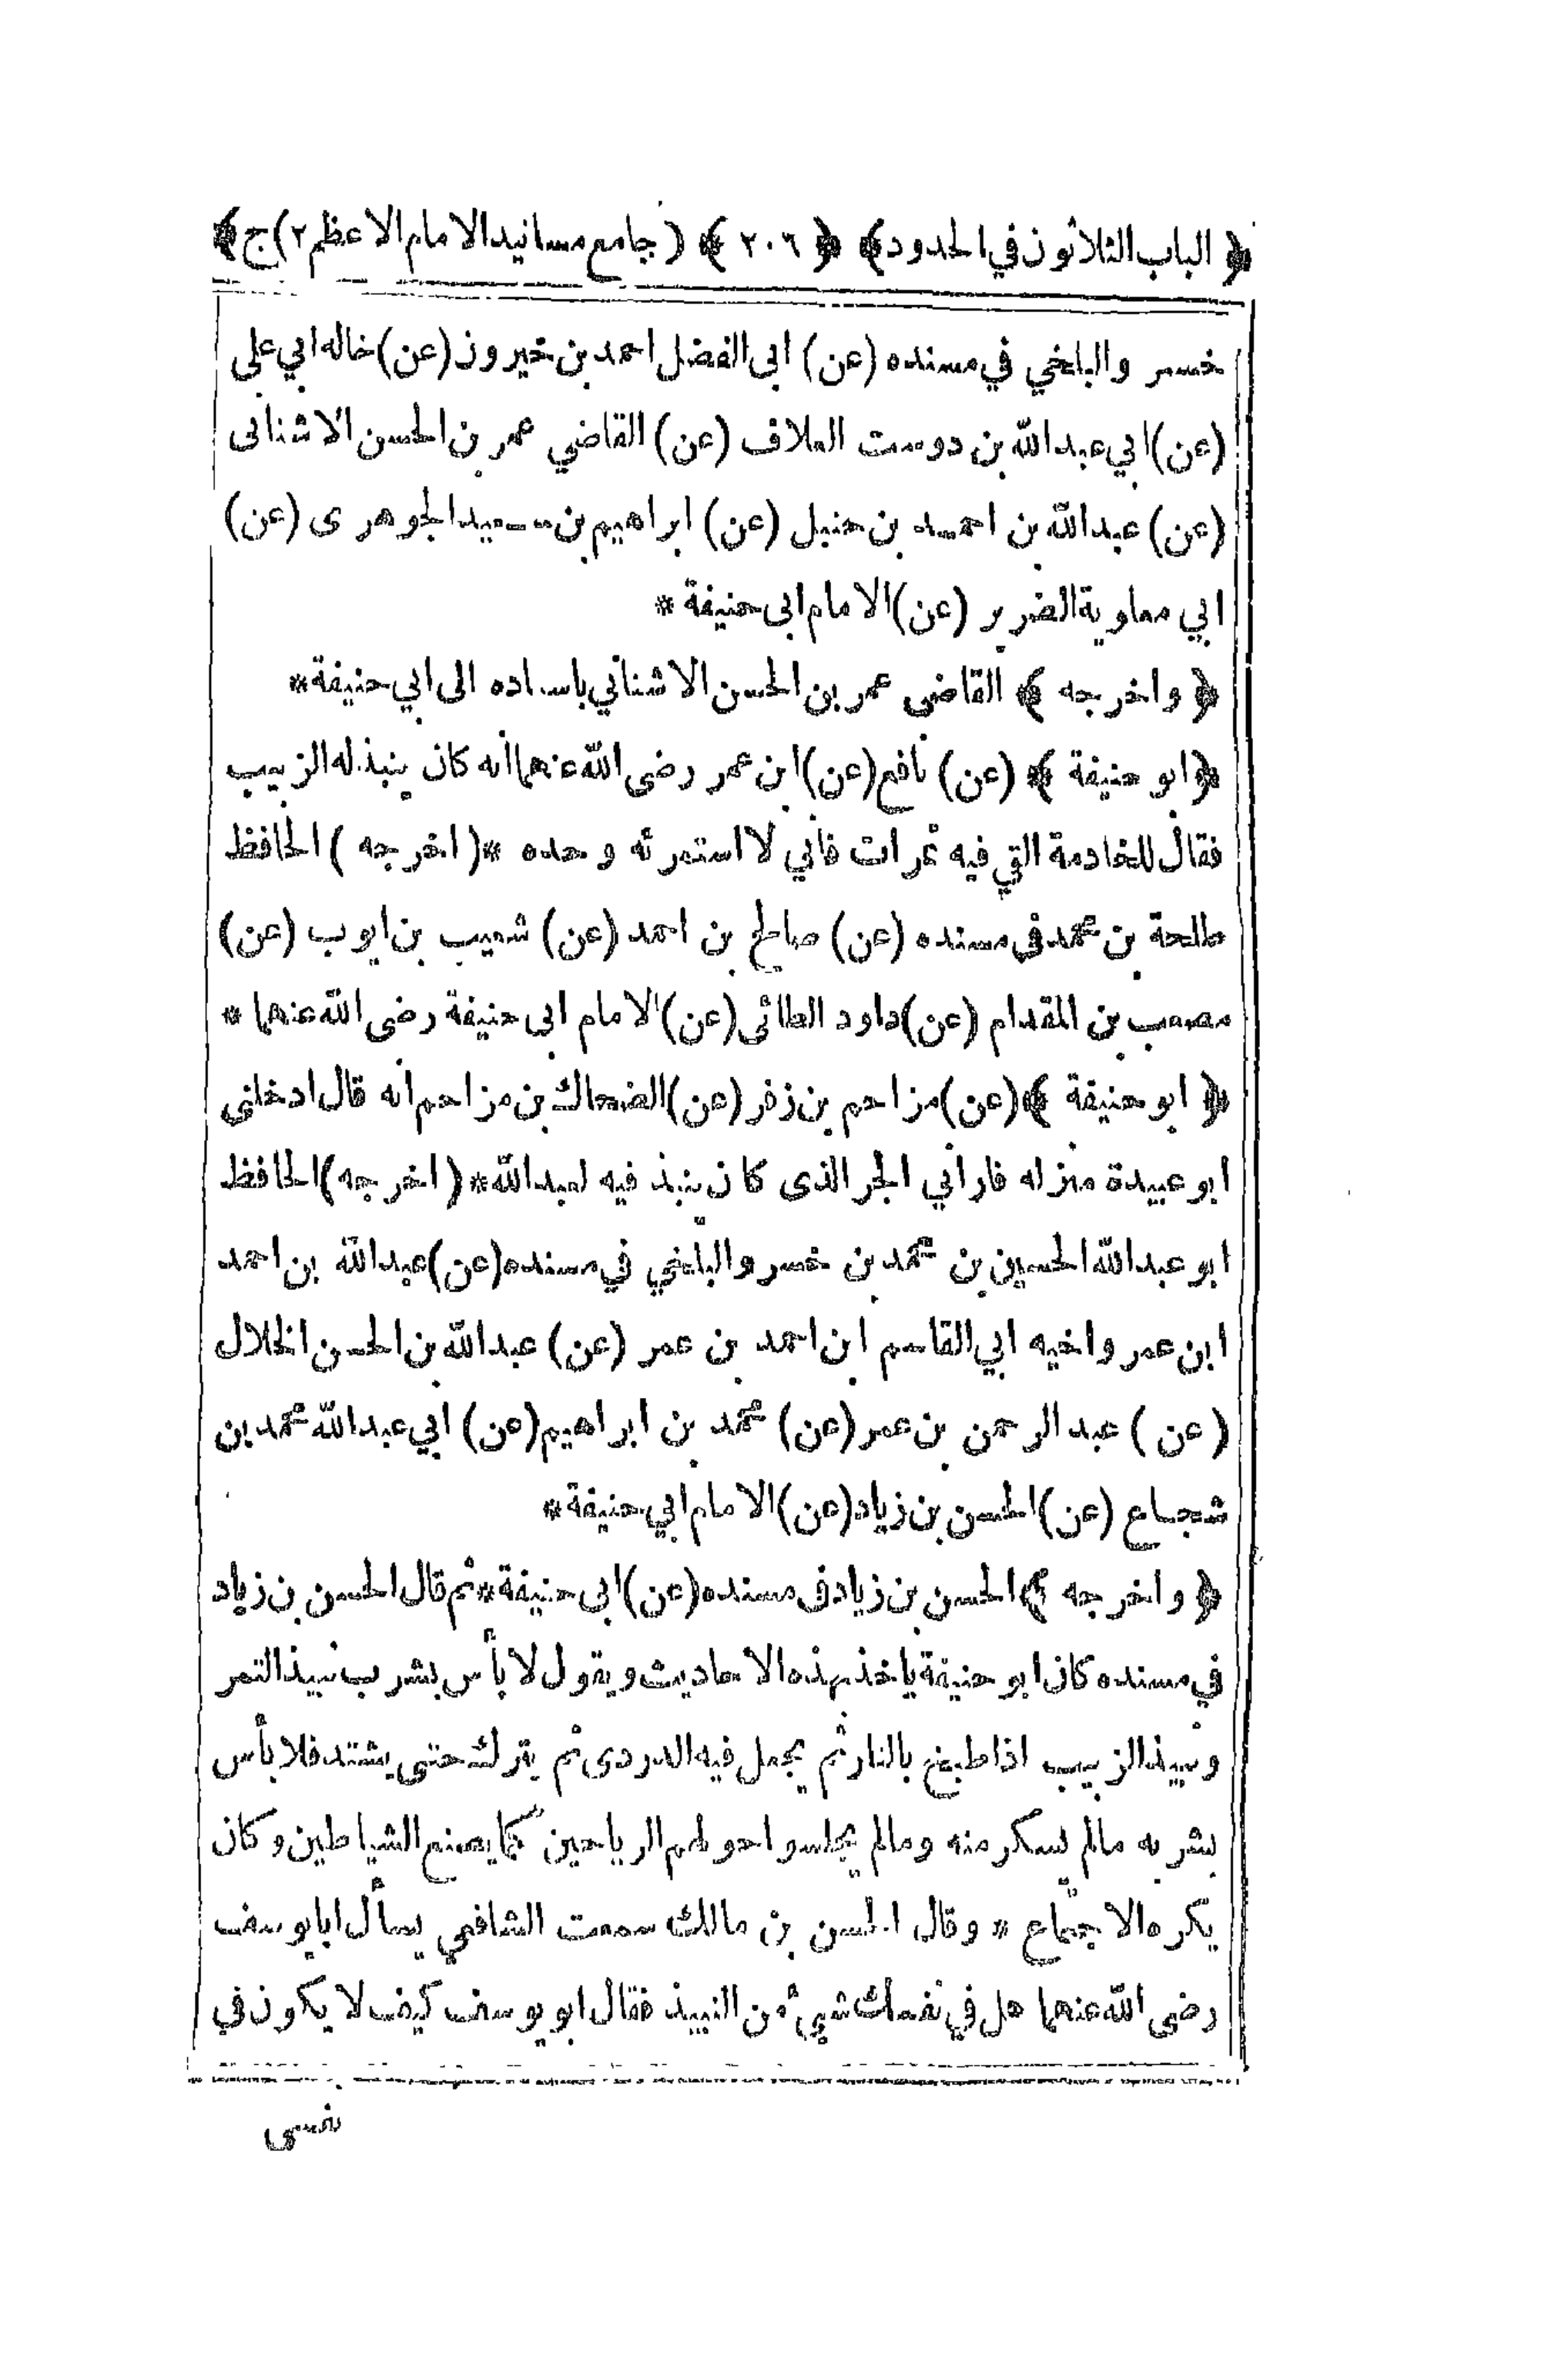 ﴿ الباب الثلاثون في الحدود ﴾ ﴿ ٢٠٦ ﴾ ( جامع مسانيد الامام الاعظم ٢)ج ﴾
خسر والبلخي في مسنده (عن) ابى الفضل احمد بن خيرون (عن) خاله ابي علي
(عن) ابي عبدالله بن دوست العلاف (عن) القاضي عمر بن الحسن الاشنانى
(عن) عبدالله بن احمد بن حنبل (عن) ابراهيم بن سعيد الجوهرى (عن)
ابي معاوية الضرير (عن) الامام ابى حنيفة *
﴿ واخرجه ﴾ القاضى عمر بن الحسن الاشناني باسناده الى ابي حنيفة *
﴿ ابو حنيفة ﴾ (عن) نافع (عن) ابن عمر رضى الله عنهما انه كان ينبذ له الزبيب
فقال للخادمة القي فيه تمرات فاني لا استمرئه وحده *( اخرجه ) الحافظ
طلحة بن محمد فى مسنده (عن) صالح بن احمد (عن) شعيب بن ايوب (عن)
مصعب بن المقدام (عن) داود الطائى (عن) الامام ابى حنيفة رضى الله عنهما *
﴿ ابو حنيفة ﴾ (عن) مزاحم بن زفر (عن) الضحاك بن مزاحم انه قال ادخلنى
ابو عبيدة منزله فارانى الجر الذى كان ينبذ فيه لعبدالله *( اخرجه ) الحافظ
ابو عبدالله الحسين بن محمد بن خسر والبلخي في مسنده (عن) عبدالله بن احمد
ابن عمر واخيه ابي القاسم ابن احمد بن عمر (عن) عبدالله بن الحسن الخلال
( عن ) عبد الرحمن بن عمر (عن) محمد بن ابراهيم (عن) ابي عبدالله محمد بن
شجاع (عن) الحسن بن زياد (عن) الامام ابي حنيفة *
﴿ واخرجه ﴾ الحسن بن زياد فى مسنده (عن) ابى حنيفة * ثم قال الحسن بن زياد
في مسنده كان ابو حنيفة ياخذ بهذه الاحاديث ويقول لا بأس بشرب نبيذ التمر
ونبيذ الزبيب اذا طبخ بالنار ثم يجعل فيه الدردى ثم يترك حتى يشتد فلا بأس
بشربه مالم يسكر منه ومالم يجلسوا حولهم الرياحين كما يصنع الشياطين وكان
يكره الاجتماع * وقال الحسن بن مالك سمعت الشافعي يسأل ابا يوسف
رضى الله عنهما هل في نفسك شيئ من النبيذ فقال ابو يوسف كيف لا يكون في
نفسى